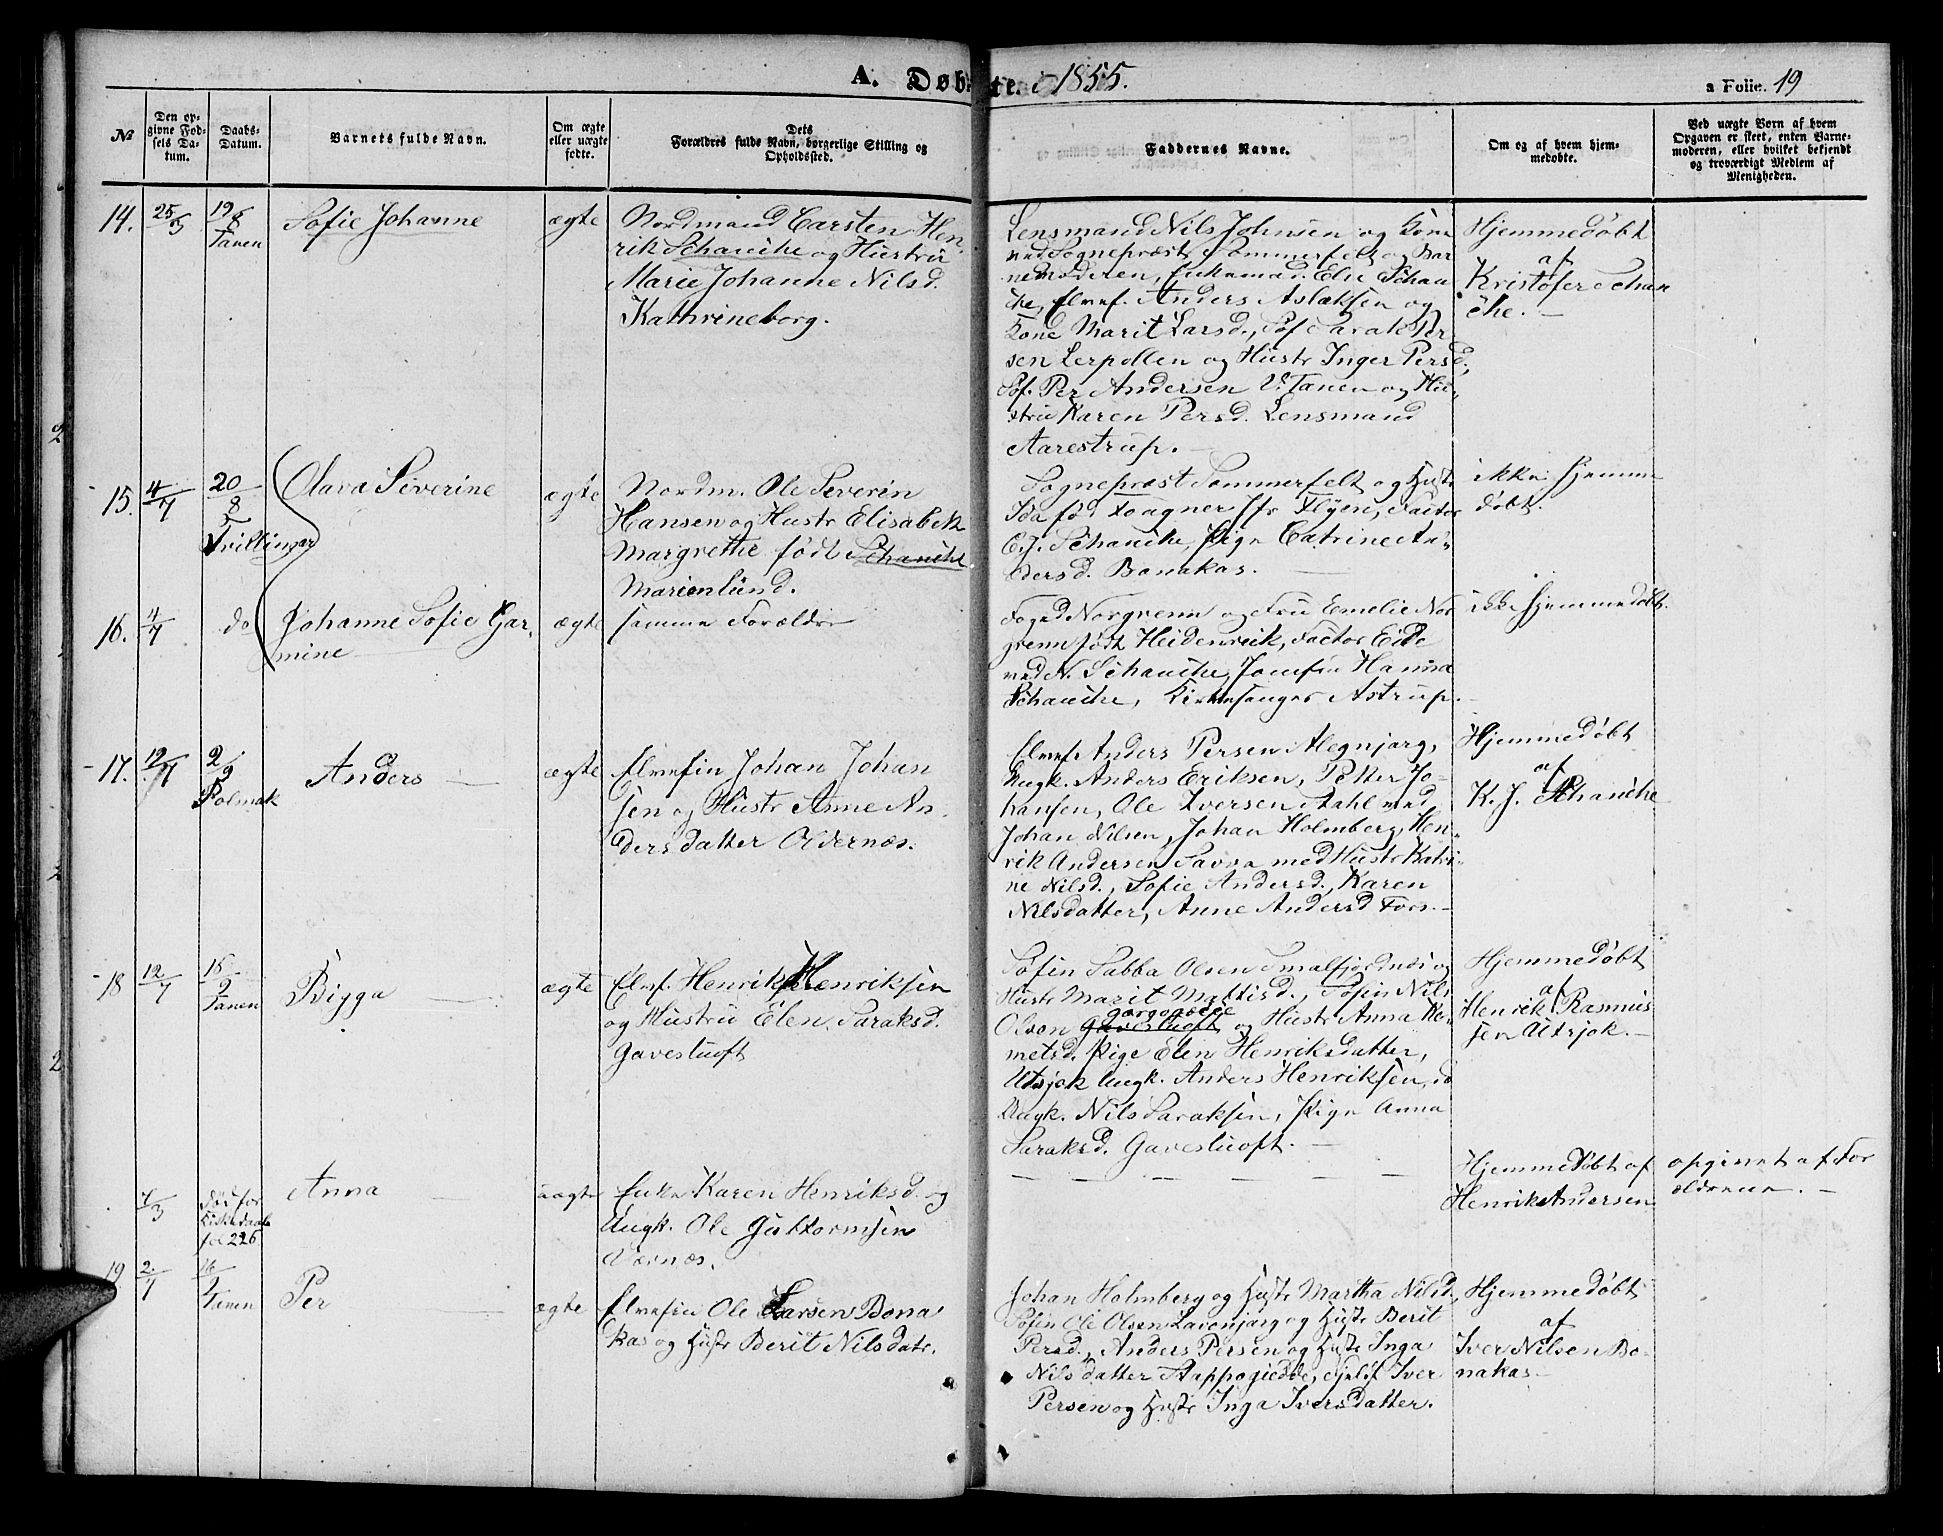 A. Døbte. i 1855.
a Folie. 19
№
Den op-
givne Fød-
sels Da-
tum.
Daabs-
Datum.
Barnets fulde Navn.
Om ægte
eller uægte
fødte.
Dets
Forældres fulde Navn, borgerlige Stilling og
Opholdssted.
Faddernes Navne.
Om og af hvem hjem-
medøbte.
Ved uægte Børn af hvem
Opgaven er skeet, enten Barne-
moderen, eller hvilket bekjendt
og troværdigt Medlem af
Menigheden.
14. 25/5 19/8
Tanen
Sofie Johanne
ægte
Nordmand Carsten Hen-
rik Schanche og Hustru
Marie Johanne Nilsd.
Kathrineborg.
Lensmand Nils Johnsen og Kone
ved Sognepræst Sommerfelt og Bar
nemoderen, Enkemad. Elie Schan
che, Elvef. Anders Aslaksen og
Kone Marit Larsd., Søf. Sarak Per
sen Lerpollen og Hustr Inger Persd,
Søf. Per Andersen V. Tanen og Hu-
stru Karen Persd. Lensmand
Aarestrup.
Hjemmedøbt
af
Kristofer Schan
che.
15. 4/7 20/8
Tvillinger
Clara Severine
ægte
Nordm. Ole Severin
Hansen og Hustr Elisabek
Margrethe født Schanche
Marienlund.
Sognepræst Sommerfelt og Hustr
Ida fød Foagner Hr Flyen, Factor
C. J. Schanche, Pige Catrine An-
dersd. Bonakas.
ikke Hjemme
døbt.
16. 4/7 do
Johanne Sofie Gar-
mine
ægte
samme Forældre
Foged Norgrenn og Fru Emelie Nor
grenn født Heidenreik, Factor Eide
ved N. Schanche, Jomfru Hanna
Schanche, Kirkesanger Astrup.
ikke Hjemmedøbt.
17. 12/7 2/9
Polmak
Anders
ægte
Elvefin Johan Johan
sen og Hustr Anne An-
dersdatter Oldernæs.
Elvef Anders Persen Alegnjarg,
Ungk. Anders Eriksen, Petter Jo-
hansen, Ole Iversen Dahl ved
Johan Nilsen, Johan Holmberg, Hen-
rik Andersen Savna med Hustr Katri-
ne Nilsd., Sofie Andersd., Karen
Nilsdatter, Anne Andersd Fors.
Hjemmedøbt
af
K. J. Schanche
18 12/7 15/9
Tanen
Bigga
ægte
Elvf. Henrik Henriksen
og Hustru Elen Saraksd.
Gavesluoft
Søfin Sabba Olsen Smalfjordnæs og
Hustr Marit Mattisd., Søfin Nils
Olsen Gavesluoft gorgogiedde og Hustr Anna Ko-
metsd. Pige Elen Henriksdatter,
Utsjok Ungk. Anders Henriksen, do
Ungk. Nils Saraksen, Pige Anna
Saraksd. Gavesluoft.
Hjemmedøbt
af
Henrik Rasmus
sen Utsjok.
7/3
død før
Kirkedaab
fol 226
Anna
uægte
Enke Karen Henriksd. og
Ungk. Ole Guttormsen
Væ næs.
Hjemmedøbt af
Henrik Andersen
opgivet af For
ældrene.
19 2/7 16/9
Tanen
Per
ægte
Elvefin Ole Larsen Bona
kas og Hustr Berit Nilsdatr.
Johan Holmberg og Hustr Martha Nilsd,
Søfin Ole Olsen Lavonjarg og Hustr Berit
Persd., Anders Persen og Hustr Inga
Nilsdatter Aappogiedde, Fjelf Iver
Persen og Hustr Inga Iversdatter.
Hjemmedøbt
af
Iver Nilsen Bo-
nakas